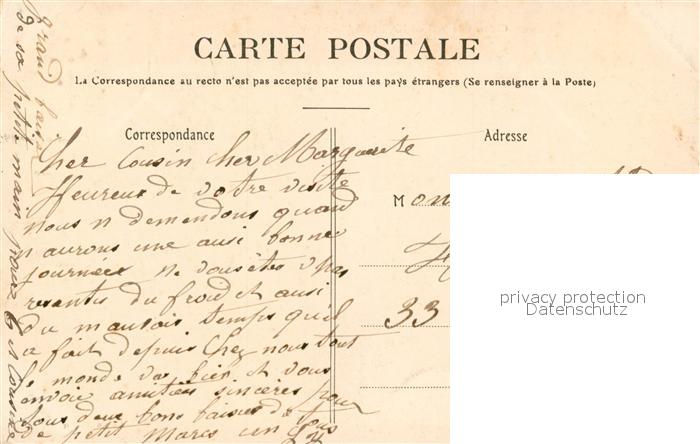 CARTE POSTALE
La Correspondance au recto n'est pas acceptée par tous les pays étrangers (Se renseigner à la Poste)
Correspondance
Cher Cousin cher Marguerite
Heureux de votre visite
nous n demendons quand
n aurons une ausi bonne
journées ne vous êtes v pas
resentis du froid et ausi
du mauvais temps qu'il
a fait depuis Chez nous tout
le monde va bien et vous
envoie amitiés sincères pour
tous deux bons baisers de
de petit Marcs un gous
Grand baisé
de sa petit main pour
Adresse
Mon
33
privacy protection
Datenschutz